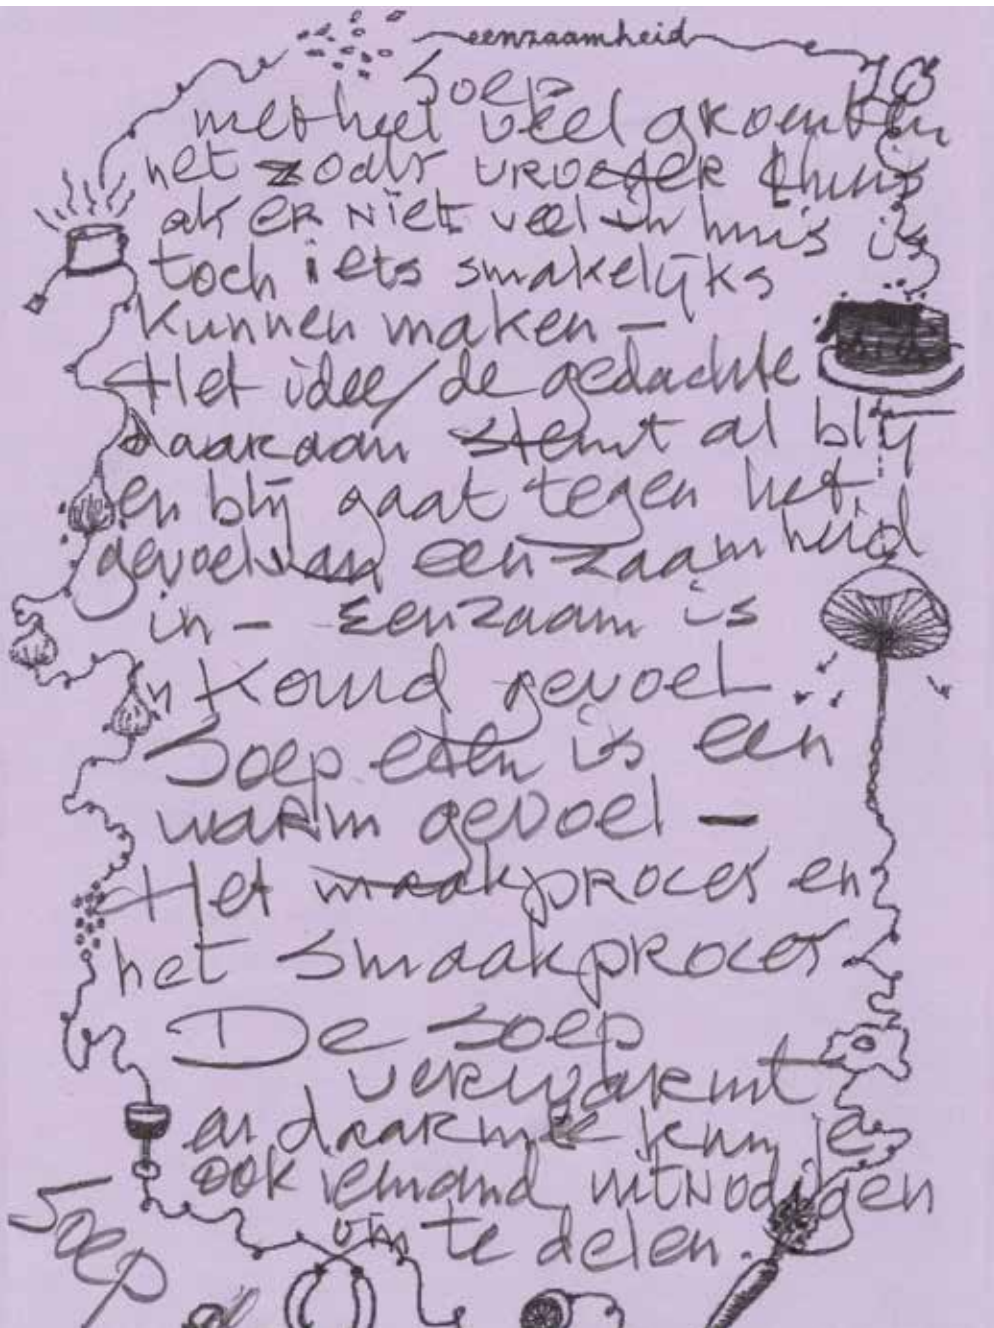 eenzaamheid
Soep
met heel veel groenten
net zoals vroeger thuis
als er niet veel in huis is
toch iets smakelijks
kunnen maken –
Het idee/de gedachte
daaraan stemt al blij
en blij gaat tegen het
gevoel van eenzaamheid
in – Eenzaam is
'n koud gevoel
Soep eten is een
warm gevoel –
Het maakproces en
het smaakproces
De soep
verwarmt
en daarmee kun je
ook iemand uitnodigen
om te delen.
Soep